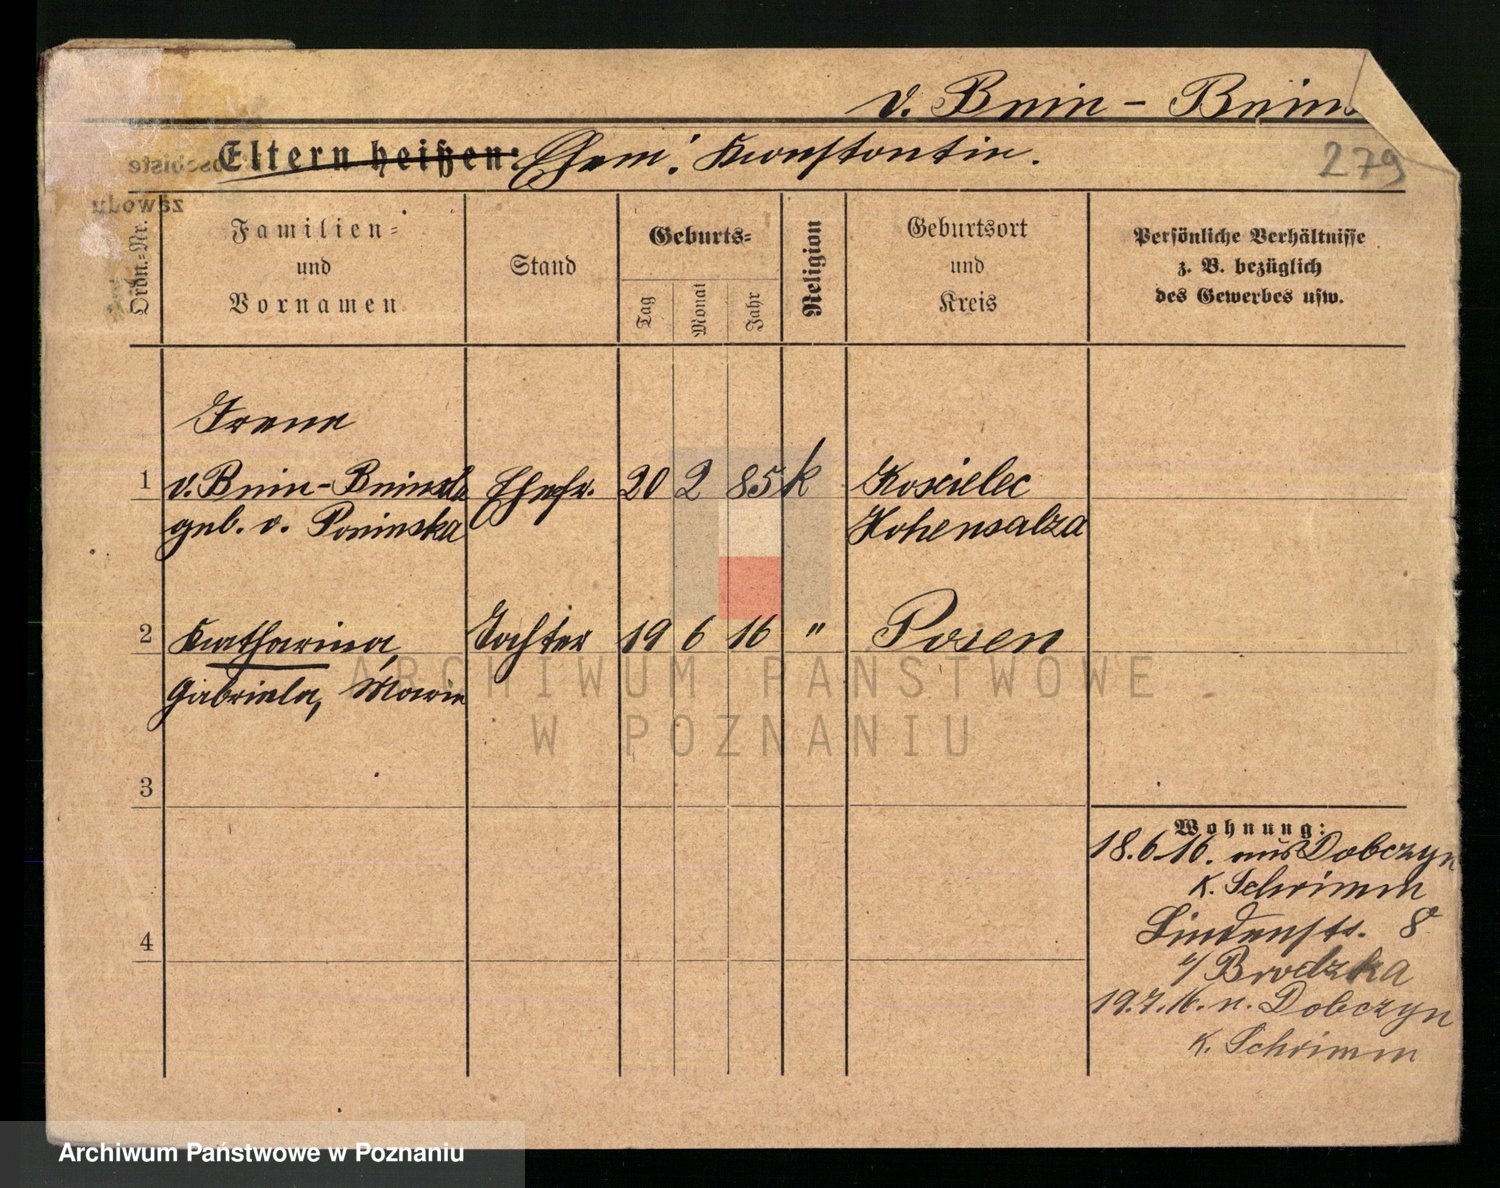 v. Bnin - Bnins
Eltern heißen: Ehem. Konstantin.
279
zawodu
Ordn.-Nr.
Familien-
und
Vornamen
Stand
Geburts-
Tag
Monat
Jahr
Religion
Geburtsort
und
Kreis
Persönliche Verhältnisse
z. B. bezüglich
des Gewerbes usw.
Irene
1 v. Bnin-Bninska Ehefr. 20 2 85 k Koscielec
geb. v. Poninska Hohensalza
2 Katharina, Tochter 19 6 16 " Posen
Gabriela, Marie
3
4
Wohnung:
18.6.16. aus Dobczyn
K. Schrimm
Lindenstr. 8
b/ Brodzka
19.7.16. n. Dobczyn
K. Schrimm
ARCHIWUM PAŃSTWOWE
W POZNANIU
Archiwum Państwowe w Poznaniu